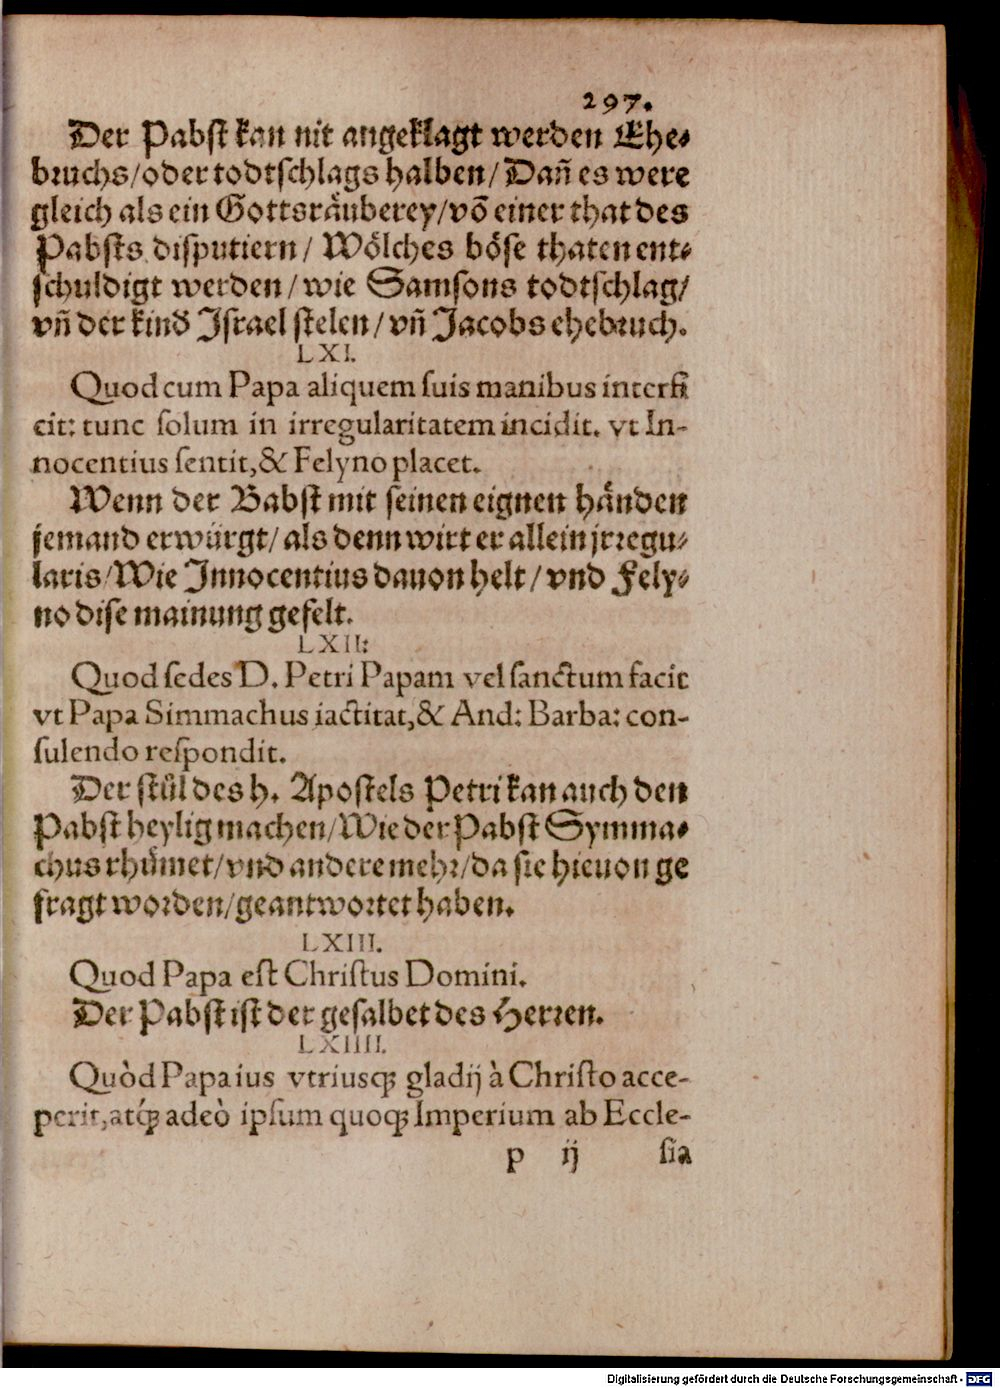 297.
Der Pabſt kan nit angeklagt werden Ehe⸗
bruchs/oder todtſchlags halben/Dañ es were
gleich als ein Gottsräuberey/võ einer that des
Pabſts diſputiern/ Wölches böſe thaten ent⸗
ſchuldigt werden/wie Samſons todtſchlag/
vñ der kind Iſrael ſtelen/vñ Jacobs ehebruch.
LXI.
Quod cum Papa aliquem ſuis manibus interfi
cit: tunc ſolum in irregularitatem incidit. vt In-
nocentius ſentit,& Felyno placet.
Wenn der Babſt mit ſeinen eignen händen
jemand erwürgt/als denn wirt er allein jrregu⸗
laris/Wie Innocentius dauon helt/vnd Fely⸗
no diſe mainung gefelt.
LXII:
Quod ſedes D. Petri Papam vel ſanctum facit
vt Papa Simmachus iactitat,& And: Barba: con-
ſulendo reſpondit.
Der ſtůl des h. Apoſtels Petri kan auch den
Pabſt heylig machen/Wie der Pabſt Symma⸗
chus rhůmet/vnd andere mehr/da ſie hieuon ge
fragt worden/geantwortet haben.
LXIII.
Quod Papa eſt Chriſtus Domini.
Der Pabſt iſt der geſalbet des Herren.
LXIIII.
Quòd Papa ius vtriusq́; gladij à Chriſto acce-
perit,atq́; adeò ipſum quoq; Imperium ab Eccle-
p ij ſia
Digitalisierung gefördert durch die Deutsche Forschungsgemeinschaft - DFG